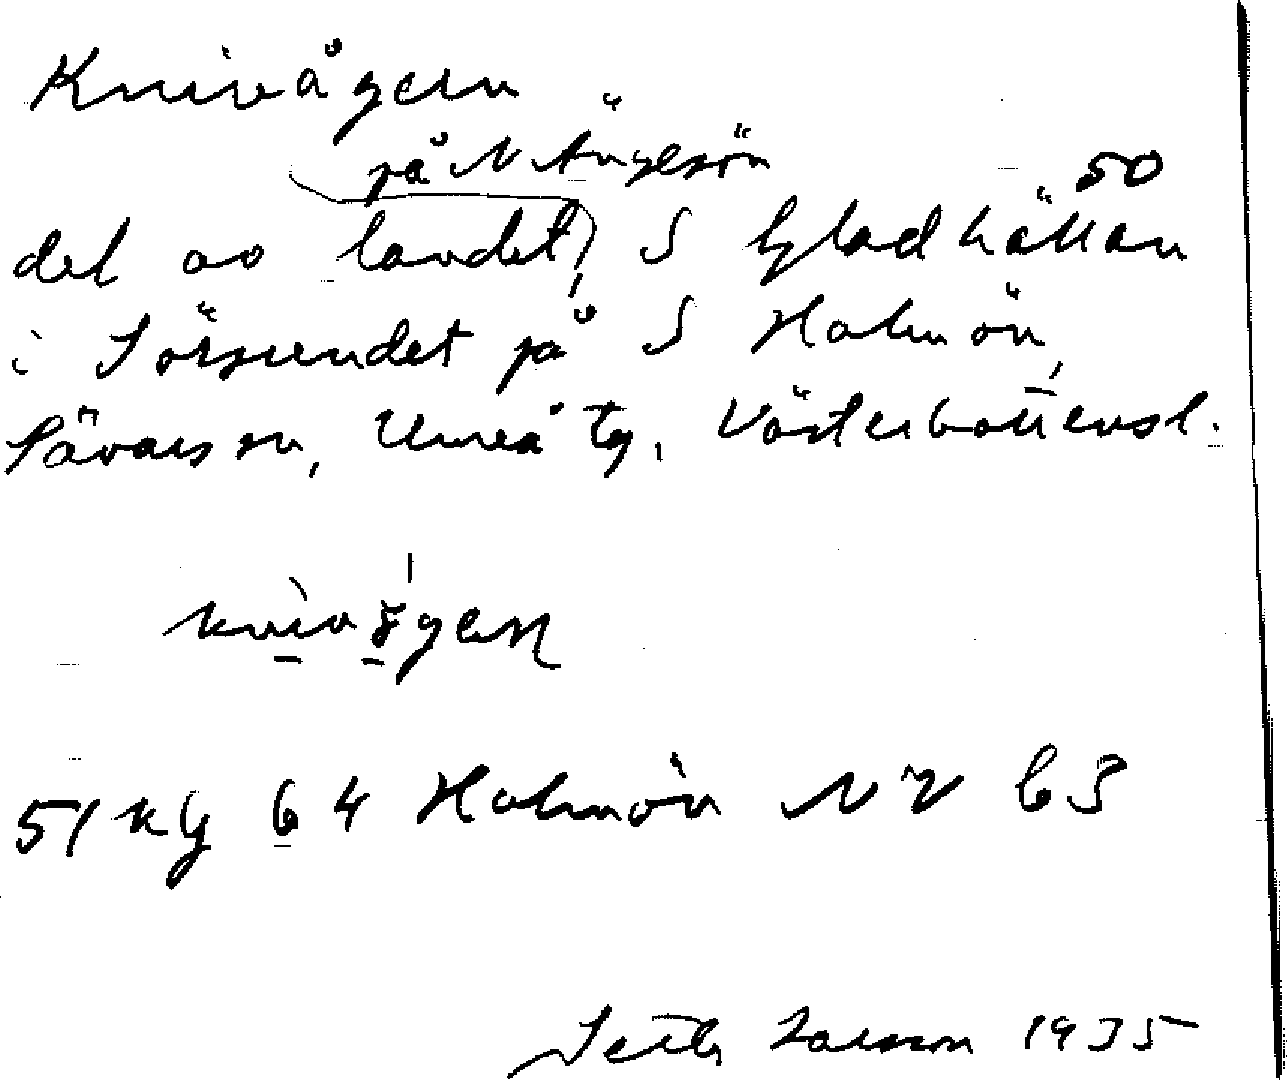 Knivågern
på N Ängesön
50
del av landet, S Gladhällan
i Sörsundet på S Holmön,
Sävars sn, Umeå tg, Västerbottensl.
51 Kg 64 Holmön NV 63
Seth Larsson 1935